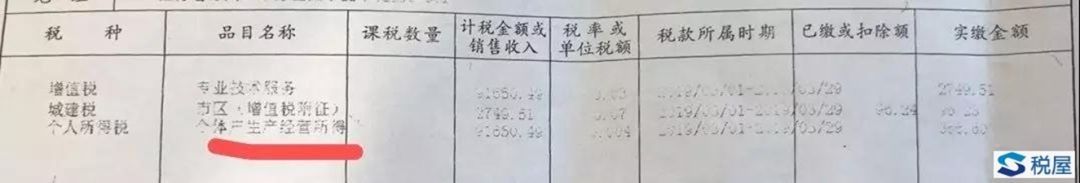 税 种 品目名称 课税数量 计税金额或销售收入 税率或单位税额 税款所属时期 已缴或扣除额 实缴金额
增值税 专业技术服务 91650.49 0.03 2019/03/01-2019/03/29 2749.51
城建税 市区(增值税附征) 2749.51 0.07 2019/03/01-2019/03/29 96.24 96.23
个人所得税 个体户生产经营所得 91650.49 0.004 2019/03/01-2019/03/29 366.60
税屋